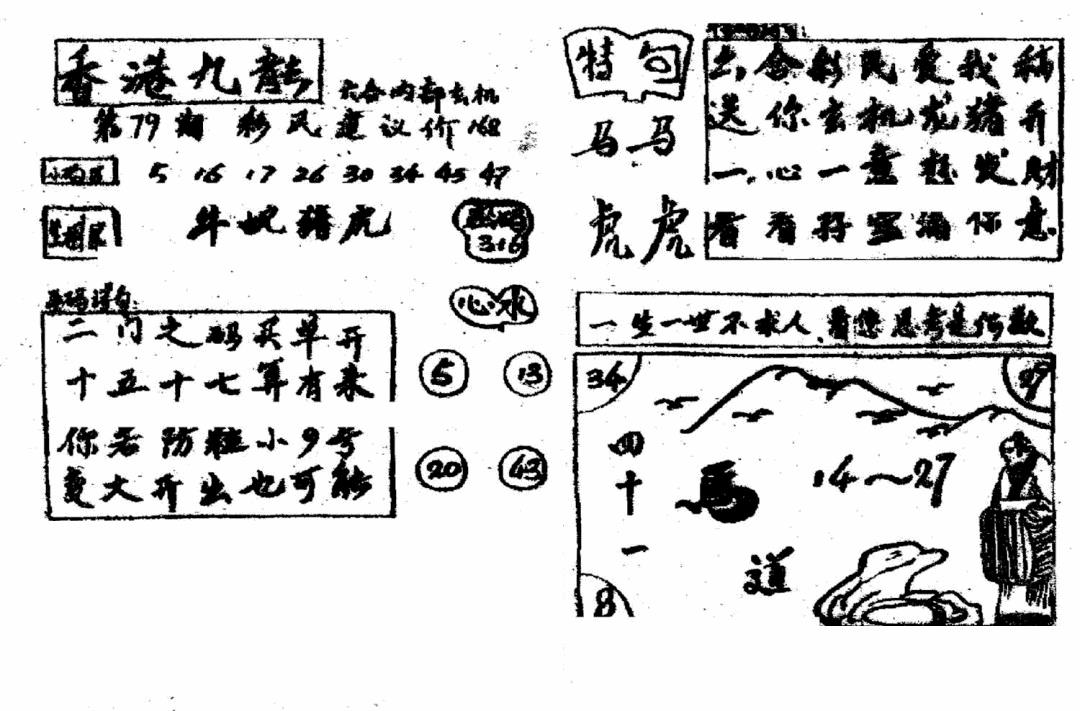 香港九龍
六合内部玄机
第79期 彩民建议价168
5 16 17 26 30 34 45 47
牛蛇猪虎
316
二门之码买单开
十五十七算有来
你若防粒小9号
变大开出也可能
心水
5 13
20 43
特句
马马
虎虎
六合彩民爱我稿
送你玄机龙猪开
一心一意想发财
看看好字涌你意
一生一世不求人.看您思考是何数
34
四十一
马
14～27
道
8